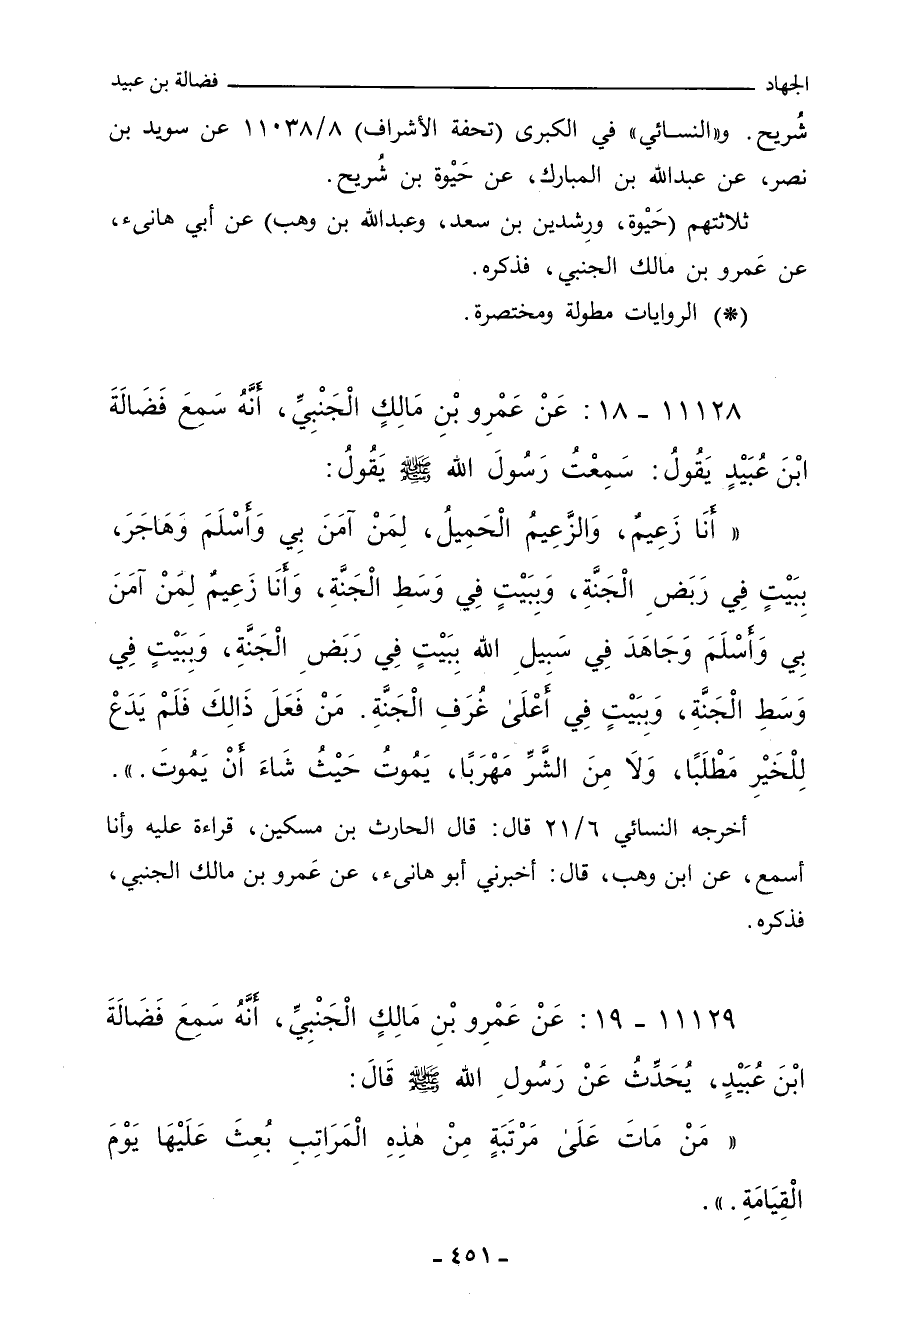 الجهاد ــــــــــــــــــــ فضالة بن عبيد
شُريح. و«النسائي» في الكبرى (تحفة الأشراف) ١١٠٣٨/٨ عن سويد بن
نصر، عن عبدالله بن المبارك، عن حَيْوة بن شُريح.
ثلاثتهم (حَيْوة، ورشدين بن سعد، وعبدالله بن وهب) عن أبي هانىء،
عن عَمرو بن مالك الجنبي، فذكره.
(*) الروايات مطولة ومختصرة.
١١١٢٨ - ١٨: عَنْ عَمْرِو بْنِ مَالِكٍ الْجَنْبِيِّ، أَنَّهُ سَمِعَ فَضَالَةَ
ابْنَ عُبَيْدٍ يَقُولُ: سَمِعْتُ رَسُولَ الله ﷺ يَقُولُ:
« أَنَا زَعِيمٌ، وَالزَّعِيمُ الْحَمِيلُ، لِمَنْ آمَنَ بِي وَأَسْلَمَ وَهَاجَرَ،
بِبَيْتٍ فِي رَبَضِ الْجَنَّةِ، وَبِبَيْتٍ فِي وَسَطِ الْجَنَّةِ، وَأَنَا زَعِيمٌ لِمَنْ آمَنَ
بِي وَأَسْلَمَ وَجَاهَدَ فِي سَبِيلِ الله بِبَيْتٍ فِي رَبَضِ الْجَنَّةِ، وَبِبَيْتٍ فِي
وَسَطِ الْجَنَّةِ، وَبِبَيْتٍ فِي أَعْلَىٰ غُرَفِ الْجَنَّةِ. مَنْ فَعَلَ ذَالِكَ فَلَمْ يَدَعْ
لِلْخَيْرِ مَطْلَبًا، وَلَا مِنَ الشَّرِّ مَهْرَبًا، يَمُوتُ حَيْثُ شَاءَ أَنْ يَمُوتَ.».
أخرجه النسائي ٢١/٦ قال: قال الحارث بن مسكين، قراءة عليه وأنا
أسمع، عن ابن وهب، قال: أخبرني أبو هانىء، عن عَمرو بن مالك الجنبي،
فذكره.
١١١٢٩ - ١٩: عَنْ عَمْرِو بْنِ مَالِكٍ الْجَنْبِيِّ، أَنَّهُ سَمِعَ فَضَالَةَ
ابْنَ عُبَيْدٍ، يُحَدِّثُ عَنْ رَسُولِ الله ﷺ قَالَ:
« مَنْ مَاتَ عَلَىٰ مَرْتَبَةٍ مِنْ هٰذِهِ الْمَرَاتِبِ بُعِثَ عَلَيْهَا يَوْمَ
الْقِيَامَةِ.».
- ٤٥١ -